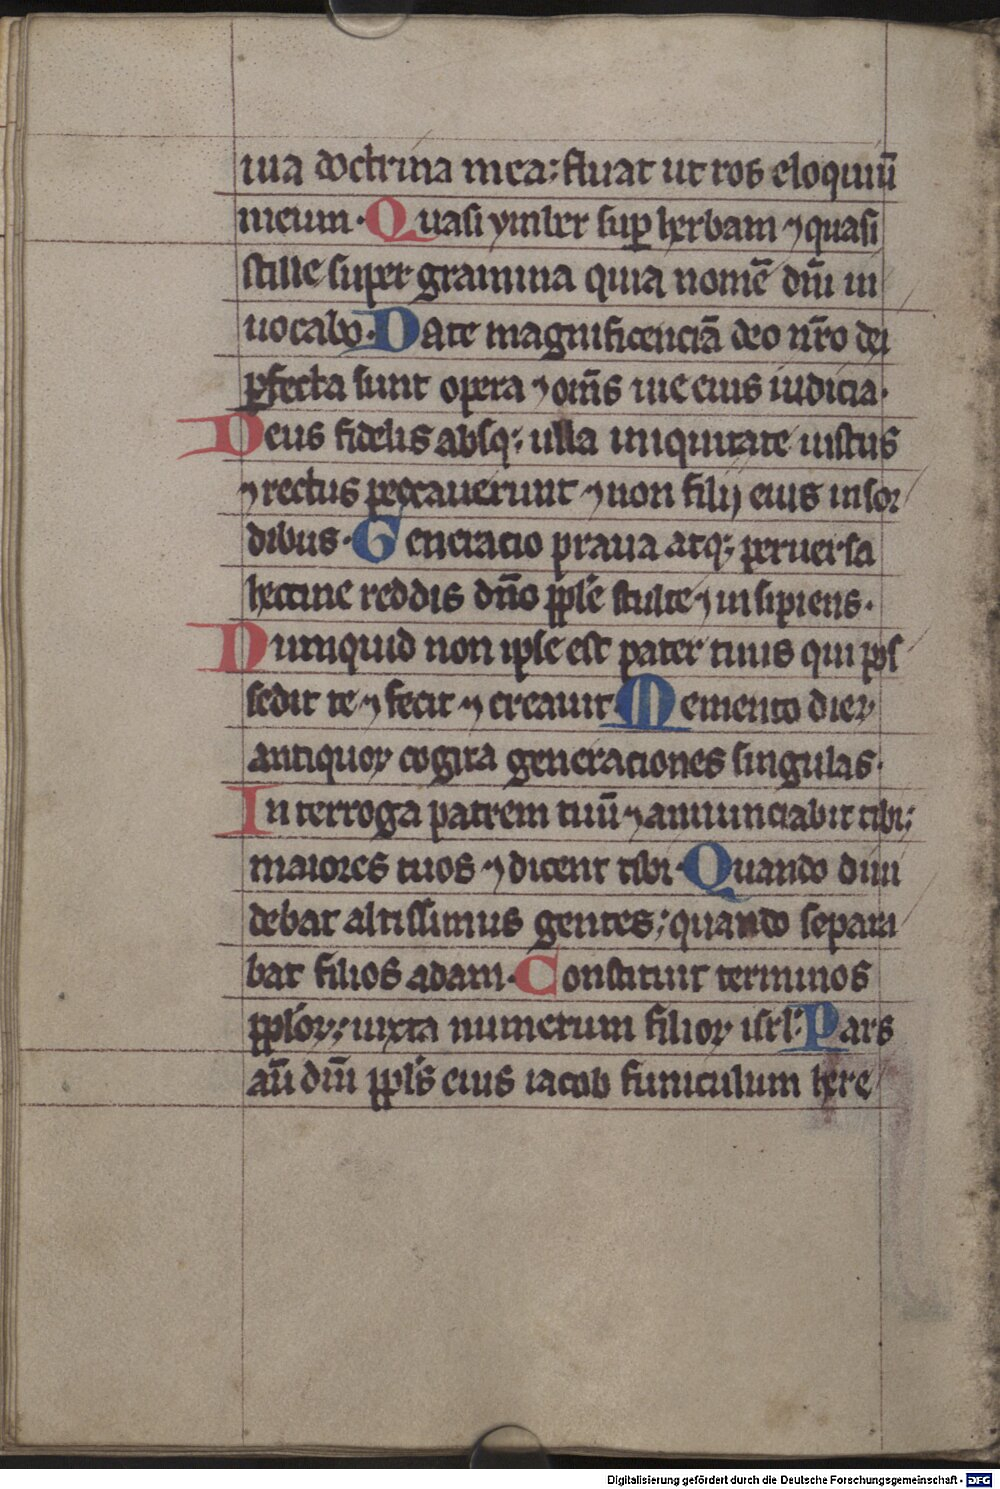 uia doctrina mea: fluat ut ros eloquiū
meum · Quasi ymber suꝑ herbam ⁊ quasi
stille super gramina quia nomē dn̄i in
uocabo · Date magnificenciā deo nr̄o dei
ꝑfecta sunt opera ⁊ om̄s uie eius iudicia ·
Deus fidelis absq; ulla iniquitate iustus
⁊ rectus peccauerunt ⁊ non filij eius in sor
dibus · Generacio praua atq; peruersa
heccine reddis dn̄o pp̄le stulte ⁊ insipiens ·
Numquid non ipse est pater tuus qui pos
sedit te ⁊ fecit ⁊ creauit · Memento dieꝝ
antiquoꝝ cogita generaciones singulas ·
Interroga patrem tuū ⁊ annunciabit tibi:
maiores tuos ⁊ dicent tibi · Quando diui
debat altissimus gentes: quando separa
bat filios adam · Constituit terminos
pp̄loꝝ: iuxta numerum filioꝝ isrl̄ · Pars
aū dn̄i pp̄ls eius iacob funiculum here
Digitalisierung gefördert durch die Deutsche Forschungsgemeinschaft - DFG